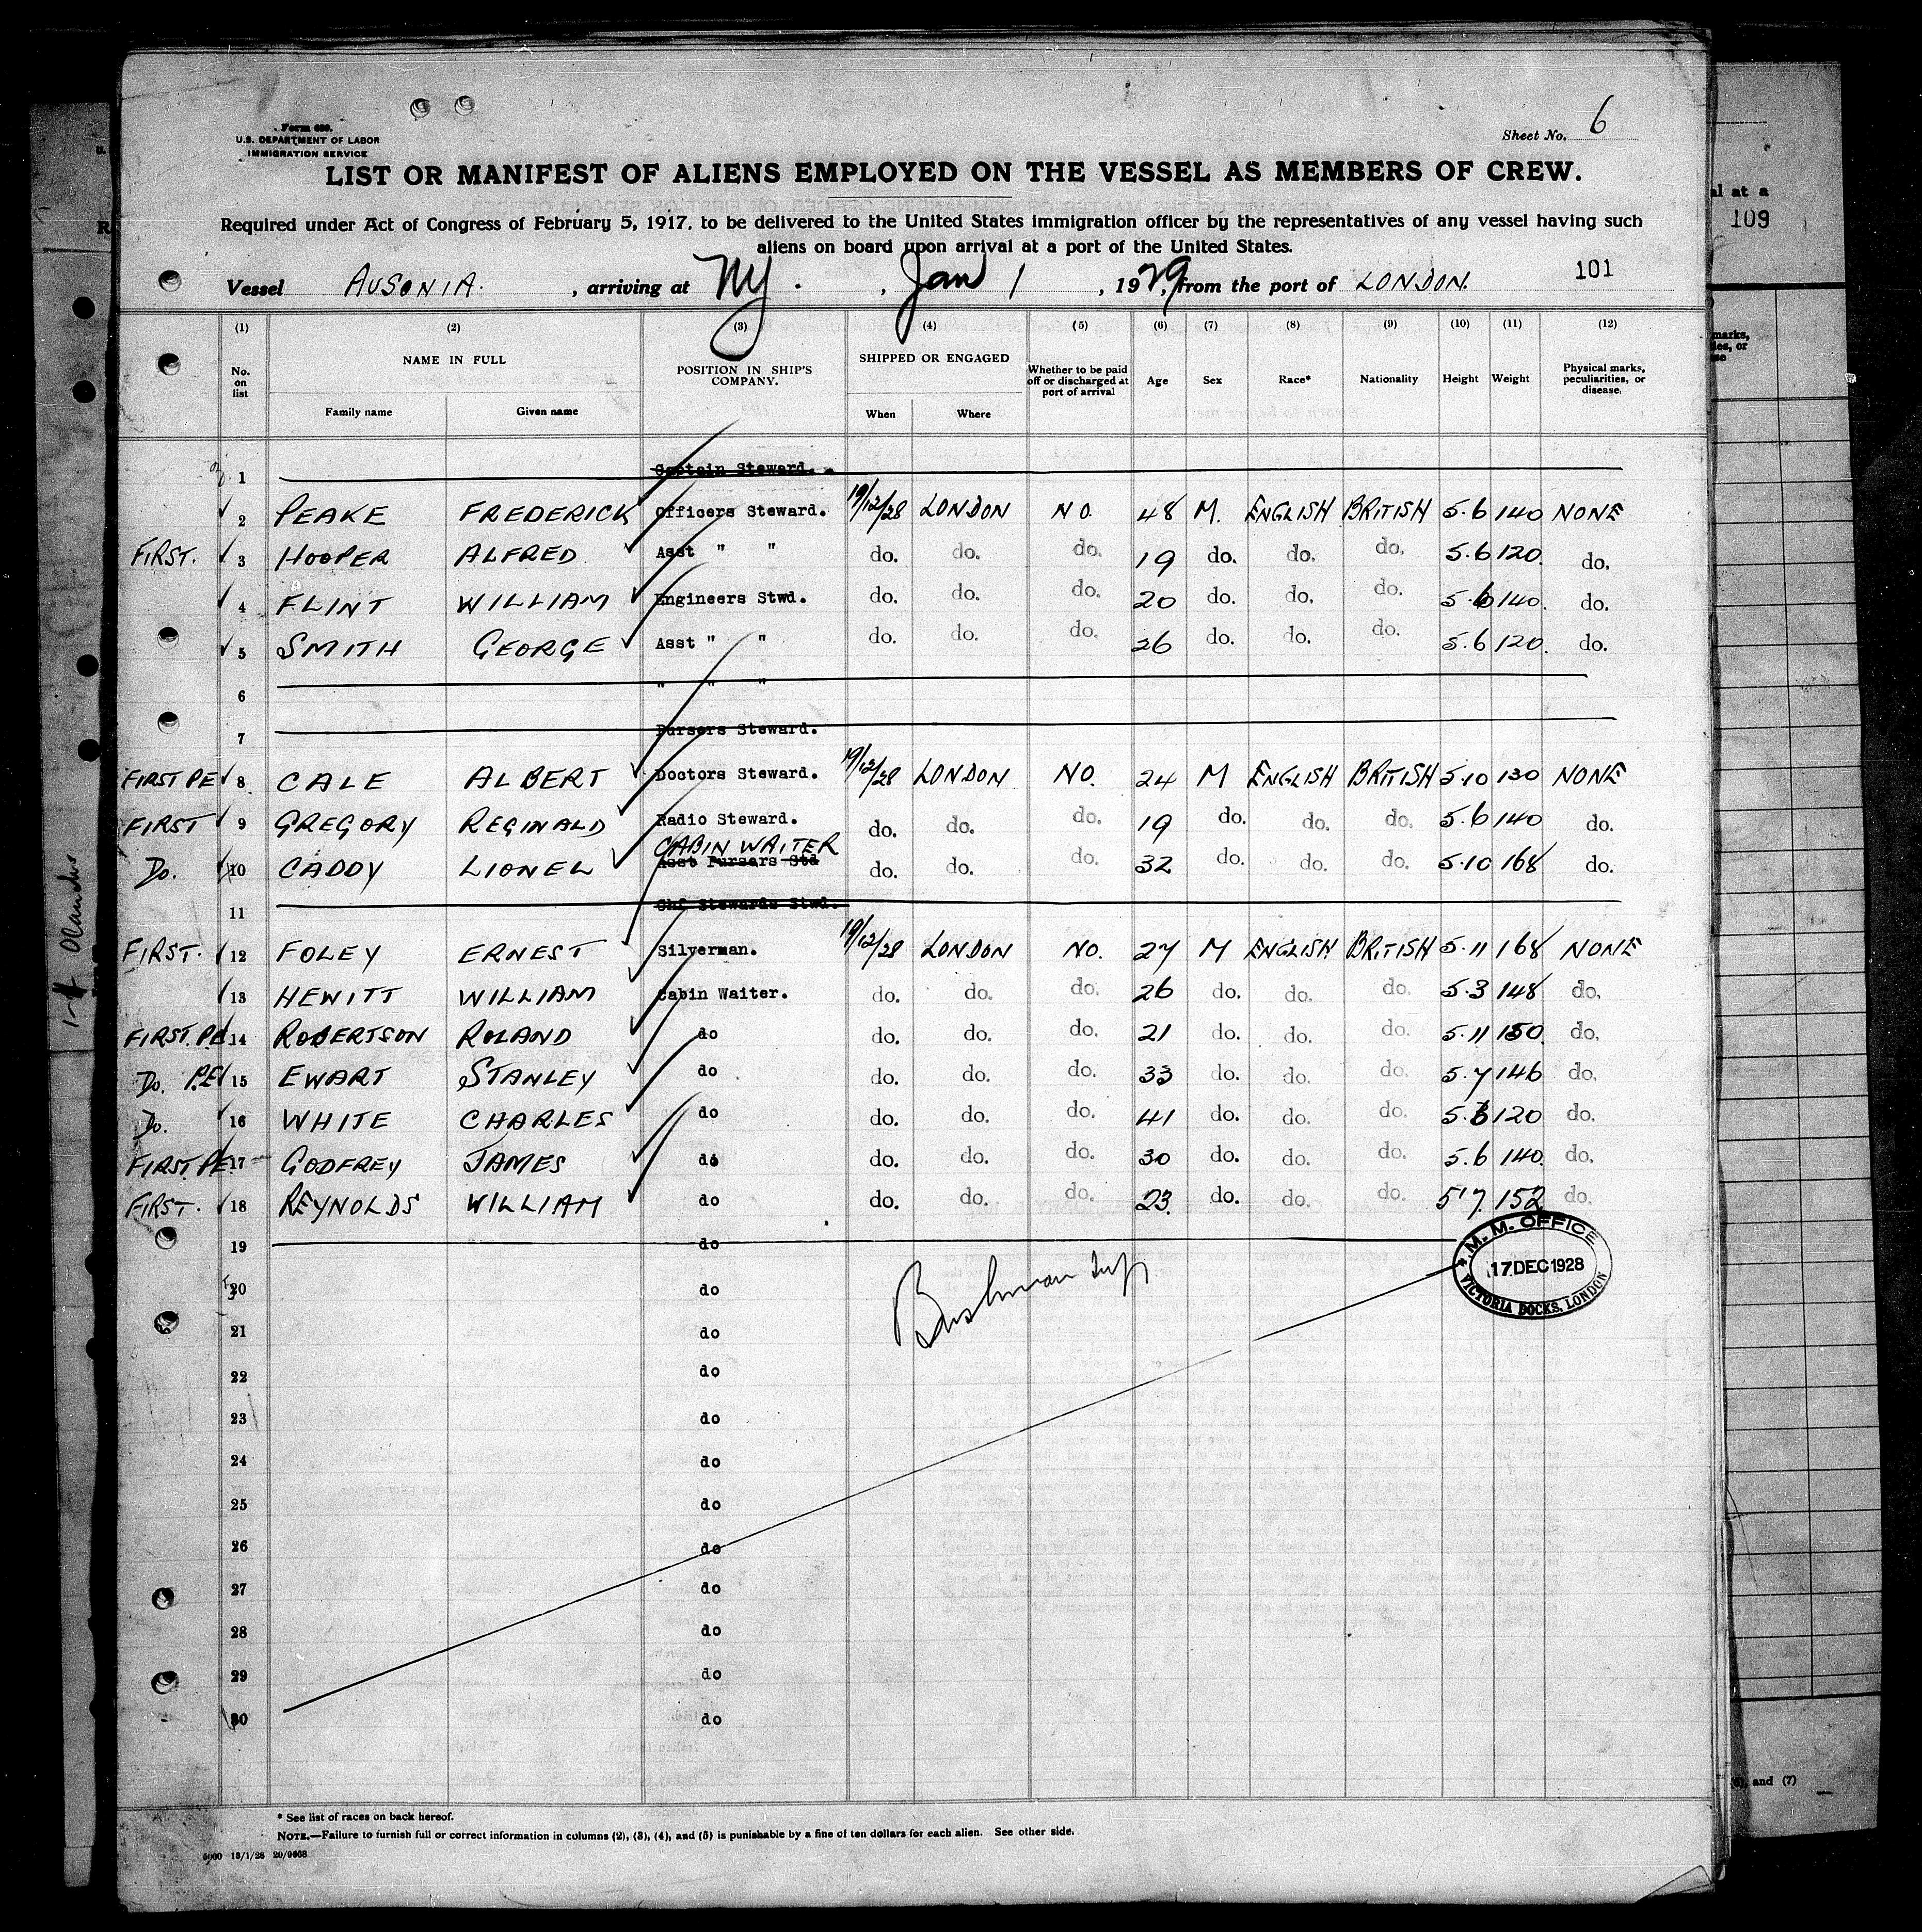 Form 689.
U.S. DEPARTMENT OF LABOR
IMMIGRATION SERVICE
Sheet No. 6
LIST OR MANIFEST OF ALIENS EMPLOYED ON THE VESSEL AS MEMBERS OF CREW.
Required under Act of Congress of February 5, 1917, to be delivered to the United States immigration officer by the representatives of any vessel having such
aliens on board upon arrival at a port of the United States.
101
Vessel AUSONIA. , arriving at NY. , Jan 1 , 1929, from the port of LONDON.
(1) (2) (3) (4) (5) (6) (7) (8) (9) (10) (11) (12)
No. on list NAME IN FULL Family name Given name POSITION IN SHIP'S COMPANY. SHIPPED OR ENGAGED When Where Whether to be paid off or discharged at port of arrival Age Sex Race* Nationality Height Weight Physical marks, peculiarities, or disease.
1 Captain Steward.
2 PEAKE FREDERICK Officers Steward. 19/12/28 LONDON NO. 48 M. ENGLISH BRITISH 5.6 140 NONE
FIRST. 3 HOOPER ALFRED Asst " " do. do. do. 19 do. do. do. 5.6 120 do.
4 FLINT WILLIAM Engineers Stwd. do. do. do. 20 do. do. do. 5.6 140. do.
5 SMITH GEORGE Asst " " do. do. do. 26 do. do. do. 5.6 120. do.
6 " " "
7 Pursers Steward.
FIRST PE 8 CALE ALBERT Doctors Steward. 19/12/28 LONDON NO. 24 M ENGLISH BRITISH 5.10 130 NONE
FIRST 9 GREGORY REGINALD Radio Steward. do. do. do. 19 do. do. do. 5.6 140 do.
CABIN WAITER
Do. 10 CADDY LIONEL Asst Pursers Std do. do. do. 32 do. do. do. 5.10 168 do.
11 Chf Stewards Stwd.
FIRST. 12 FOLEY ERNEST Silverman. 19/12/28 LONDON NO. 27 M ENGLISH BRITISH 5.11 168 NONE
13 HEWITT WILLIAM Cabin Waiter. do. do. do. 26 do. do. do. 5.3 148 do.
FIRST. PE 14 ROBERTSON ROLAND do do. do. do. 21 do. do. do. 5.11 150. do.
Do. P.E 15 EWART STANLEY do do. do. do. 33 do. do. do. 5.7 146 do.
Do. 16 WHITE CHARLES do do. do. do. 41 do. do. do. 5.3 120 do.
FIRST. PE. 17 GODFREY JAMES do do. do. do. 30 do. do. do. 5.6 140. do.
FIRST. 18 REYNOLDS WILLIAM do do. do. do. 23. do. do. do. 5'7. 152 do.
19 do
M. M. OFFICE
17 DEC 1928
VICTORIA DOCKS, LONDON
20 do
Bushman
21 do
22 do
23 do
24 do
25 do
26 do
27 do
28 do
29 do
30 do
* See list of races on back hereof.
NOTE.—Failure to furnish full or correct information in columns (2), (3), (4), and (5) is punishable by a fine of ten dollars for each alien. See other side.
5000 13/1/28 20/9668
al at a
109
marks,
ies, or
and (7)